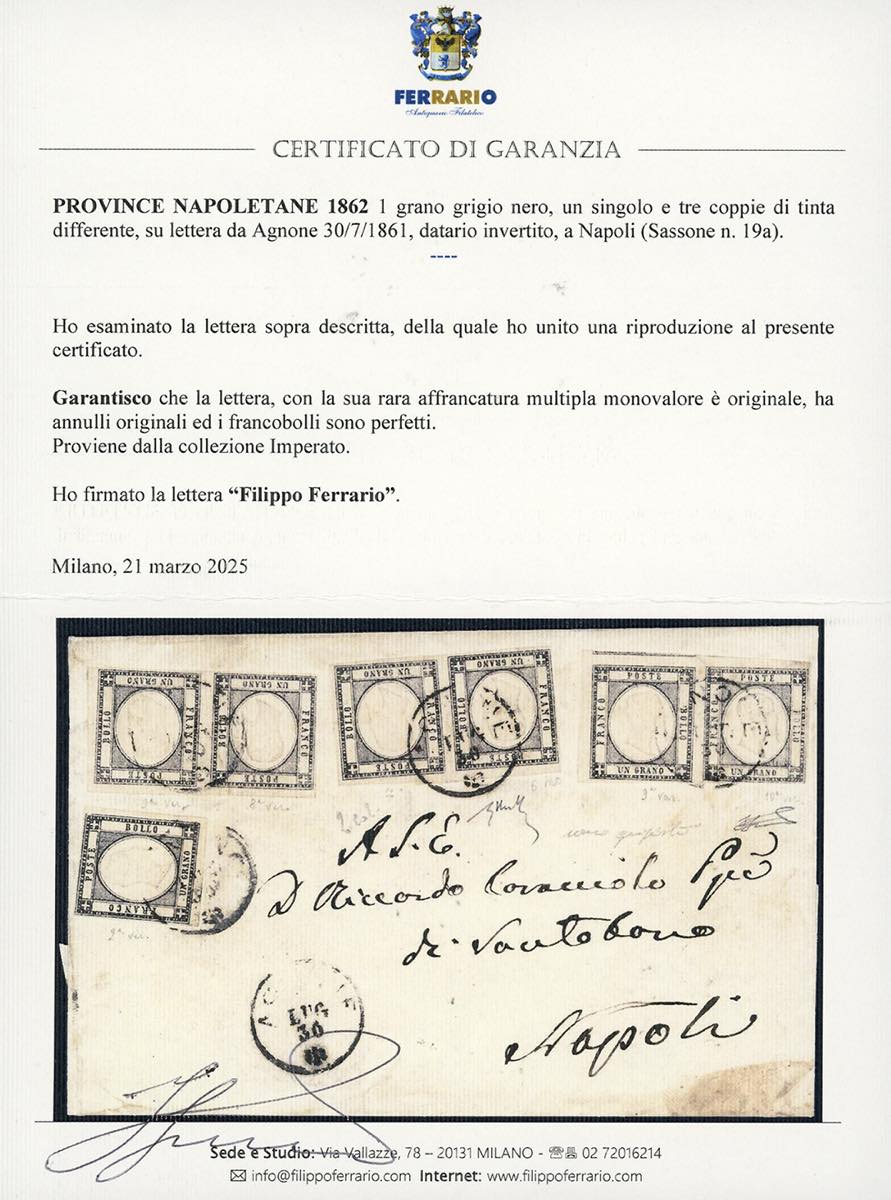 FERRARIO
Antiquariato Filatelico
CERTIFICATO DI GARANZIA
PROVINCE NAPOLETANE 1862 1 grano grigio nero, un singolo e tre coppie di tinta
differente, su lettera da Agnone 30/7/1861, datario invertito, a Napoli (Sassone n. 19a).
----
Ho esaminato la lettera sopra descritta, della quale ho unito una riproduzione al presente
certificato.
Garantisco che la lettera, con la sua rara affrancatura multipla monovalore è originale, ha
annulli originali ed i francobolli sono perfetti.
Proviene dalla collezione Imperato.
Ho firmato la lettera “Filippo Ferrario”.
Milano, 21 marzo 2025
UN GRANO BOLLO FRANCO POSTE
UN GRANO BOLLO FRANCO POSTE
UN GRANO BOLLO FRANCO POSTE
UN GRANO BOLLO FRANCO POSTE
POSTE FRANCO BOLLO UN GRANO
POSTE FRANCO BOLLO UN GRANO
BOLLO POSTE UN GRANO FRANCO
A S. E.
D Riccardo Caracciolo
di Santobono
Napoli
LUG
30
Sede e Studio: Via Vallazze, 78 – 20131 MILANO - 02 72016214
info@filippoferrario.com Internet: www.filippoferrario.com